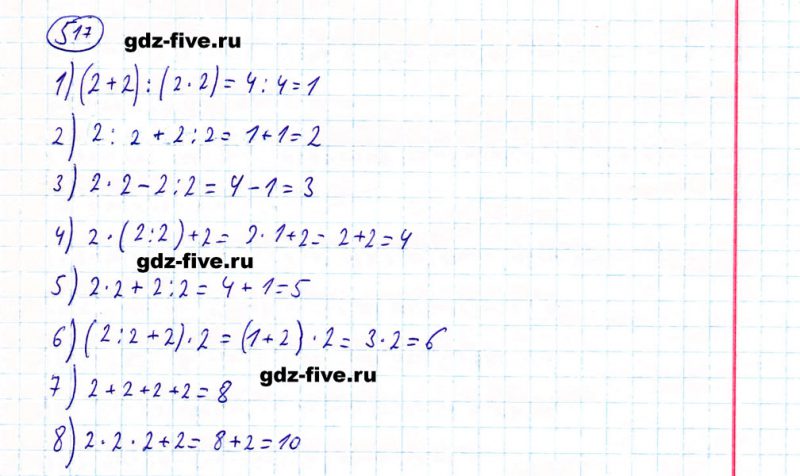 517
gdz-five.ru
1) (2+2) : (2·2) = 4 : 4 = 1
2) 2 : 2 + 2 : 2 = 1+1 = 2
3) 2·2 - 2 : 2 = 4 - 1 = 3
4) 2·(2:2)+2 = 2·1+2 = 2+2 = 4
gdz-five.ru
5) 2·2 + 2 : 2 = 4 + 1 = 5
6) (2:2+2)·2 = (1+2)·2 = 3·2 = 6
gdz-five.ru
7) 2+2+2+2 = 8
8) 2·2·2+2 = 8+2 = 10